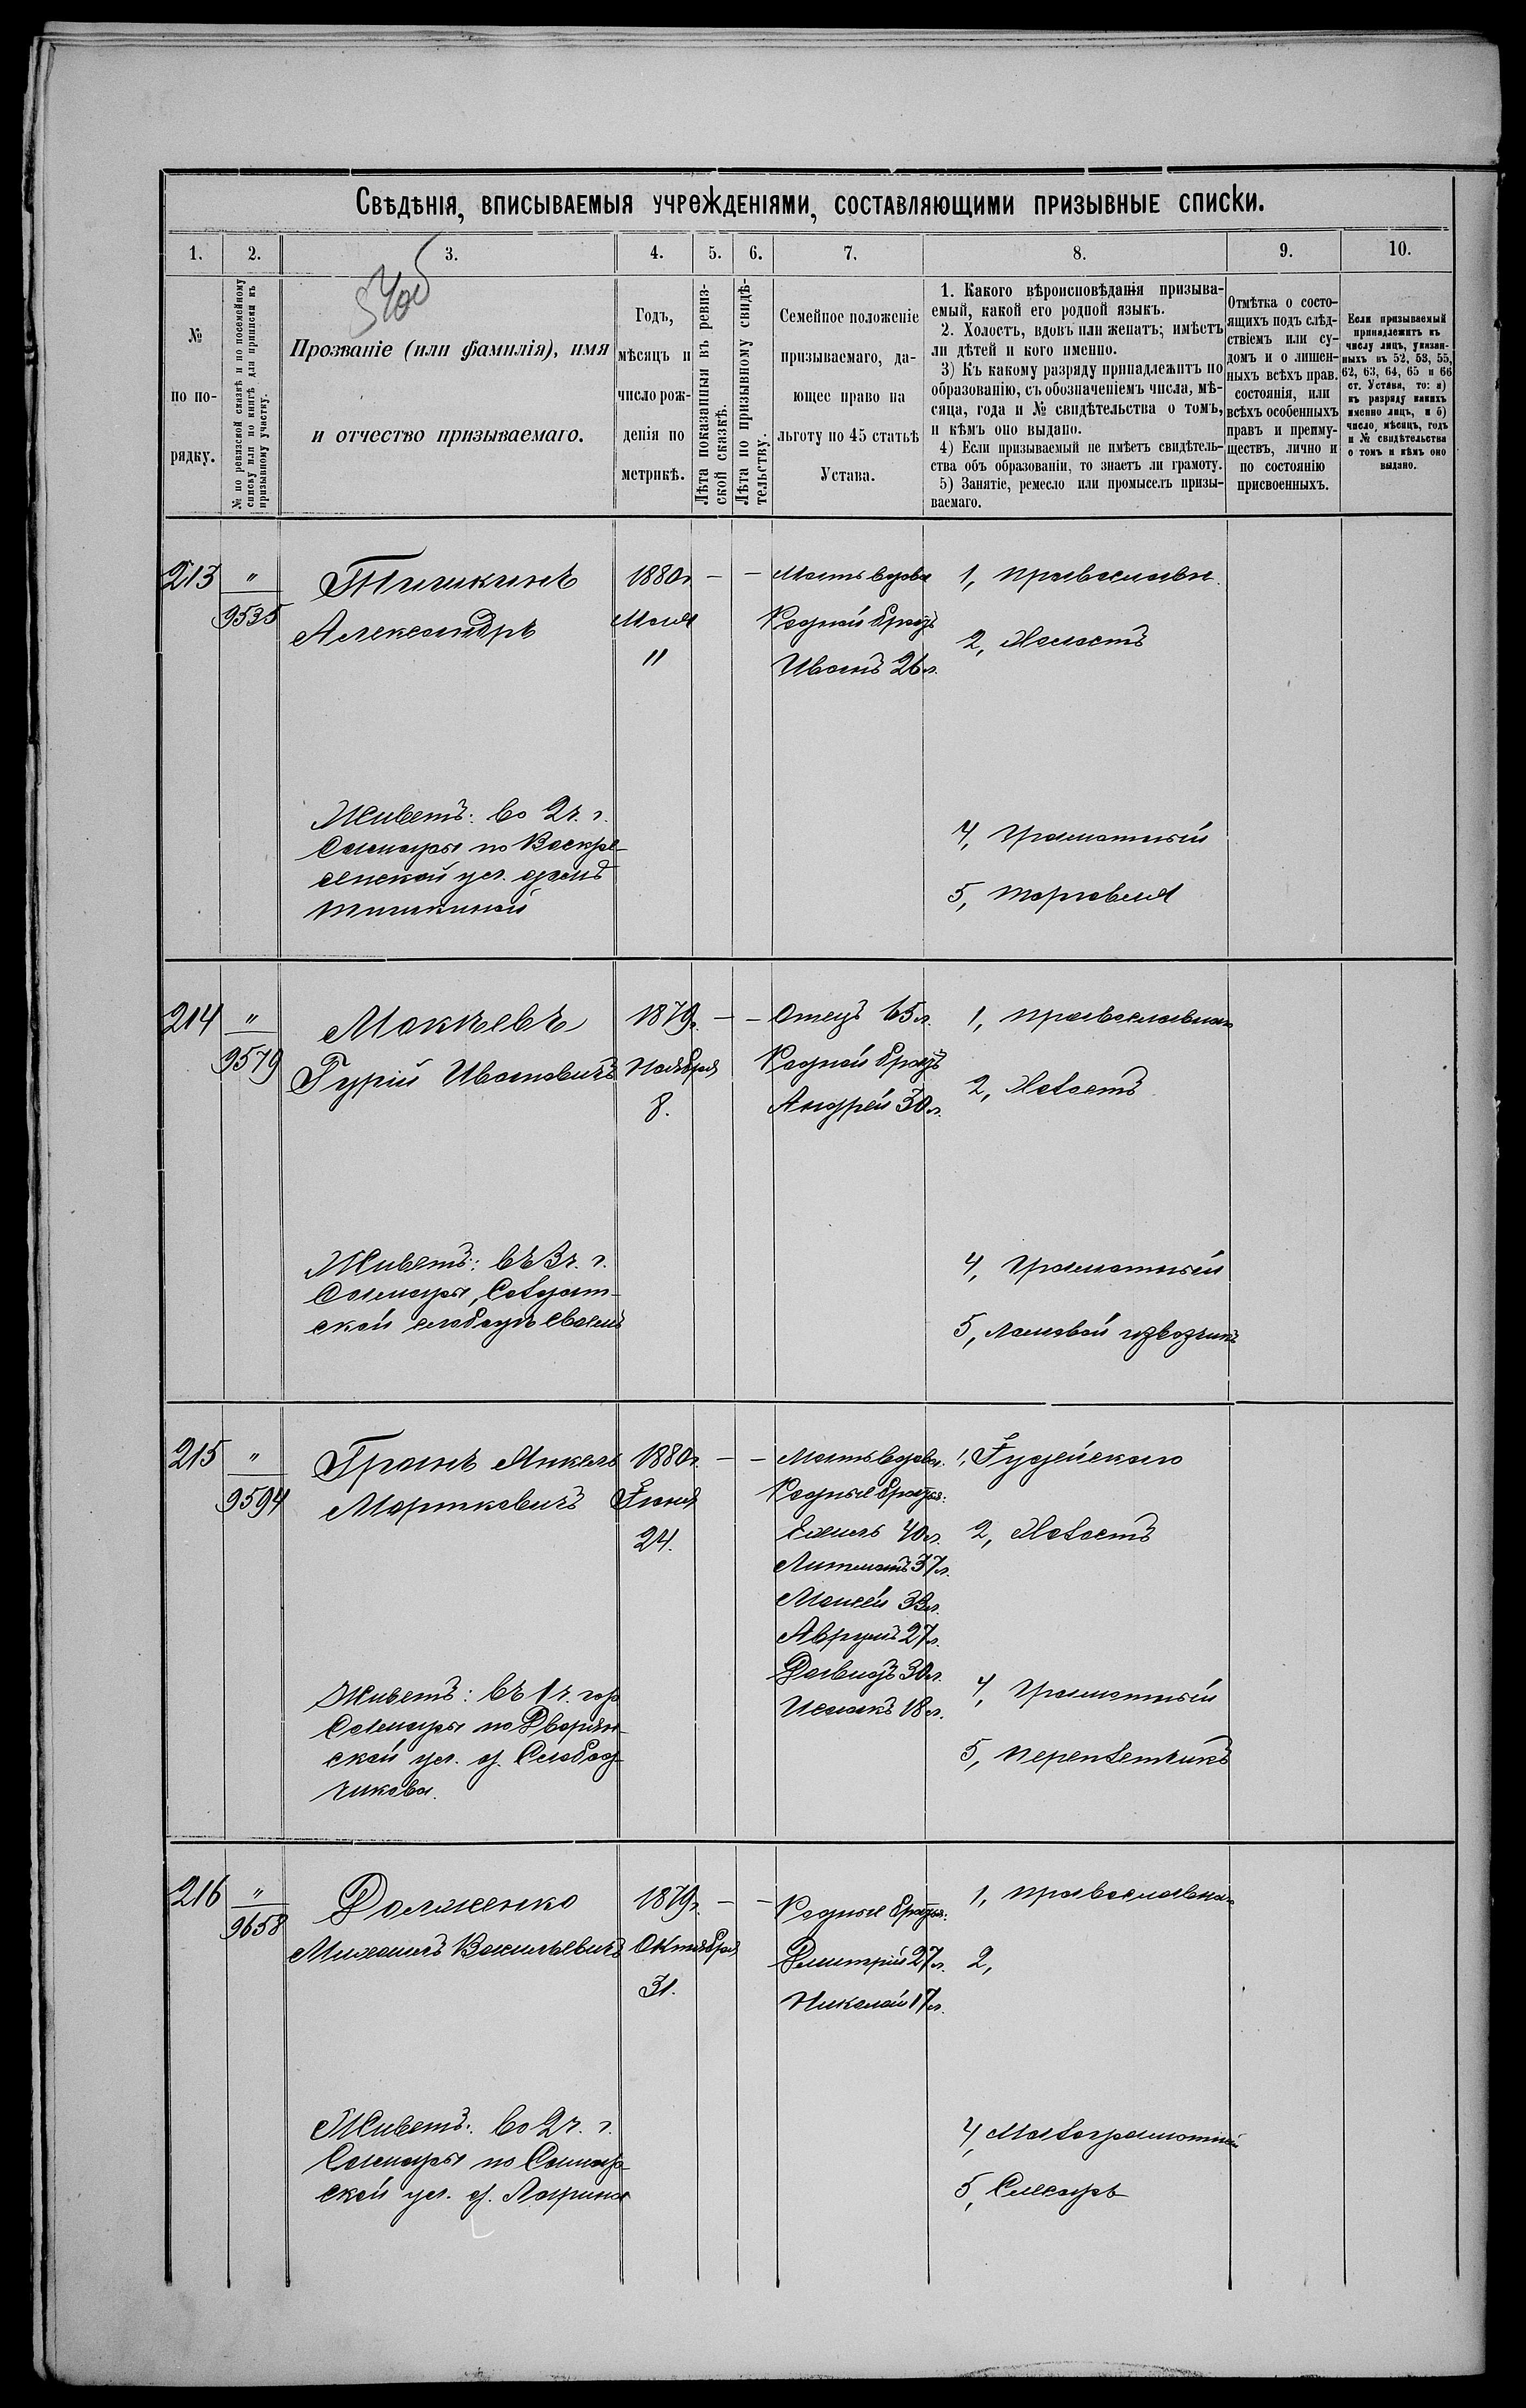 Свѣдѣнія, вписываемыя учрежденіями, составляющими призывные списки.
1. 2. 3. 4. 5. 6. 7. 8. 9. 10.
№ по порядку.
№ по ревизской сказкѣ и по посемейному
списку или по книгѣ для приписки къ
призывному участку.
Прозваніе (или фамилія), имя
и отчество призываемаго.
Годъ,
мѣсяцъ и
число рож-
денія по
метрикѣ.
Лѣта показанныя въ ревиз-
ской сказкѣ.
Лѣта по призывному свидѣ-
тельству.
Семейное положеніе
призываемаго, да-
ющее право на
льготу по 45 статьѣ
Устава.
1. Какого вѣроисповѣданія призыва-
емый, какой его родной языкъ.
2. Холостъ, вдовъ или женатъ; имѣетъ
ли дѣтей и кого именно.
3) Къ какому разряду принадлежитъ по
образованію, съ обозначеніемъ числа, мѣ-
сяца, года и № свидѣтельства о томъ,
и кѣмъ оно выдано.
4) Если призываемый не имѣетъ свидѣтель-
ства объ образованіи, то знаетъ ли грамоту.
5) Занятіе, ремесло или промыселъ призы-
ваемаго.
Отмѣтка о состо-
ящихъ подъ слѣд-
ствіемъ или су-
домъ и о лишен-
ныхъ всѣхъ прав.
состоянія, или
всѣхъ особенныхъ
правъ и преиму-
ществъ, лично и
по состоянію
присвоенныхъ.
Если призываемый
принадлежитъ къ
числу лицъ, указан-
ныхъ въ 52, 53, 55,
62, 63, 64, 65 и 66
ст. Устава, то: а)
къ разряду какихъ
именно лицъ, и б)
число, мѣсяцъ, годъ
и № свидѣтельства
о томъ и кѣмъ оно
выдано.
213 " 9535
Тишкинъ
Александръ
1880г.
Мая
"
— —
Мать вдова
Родной братъ
Иванъ 26 л.
1, Православн.
2, Холостъ
Живетъ: во 2 ч. г.
Самары по Воскре-
сенской ул. домъ
Тишкиной
4, Грамотный
5, Торговля
214 " 9579
Мокѣевъ
Гурій Ивановичъ
1879г.
Ноября
8.
— —
Отецъ 65 л.
Родной братъ
Андрей 30 л.
1, Православнаго
2, Холостъ
Живетъ: въ 3 ч. г.
Самары, Солдат-
ской слободѣ своемъ
4, Грамотный
5, Ломовой извозчикъ
215 " 9594
Гранъ Янкель
Мортковичъ
1880г.
Іюня
24.
— —
Мать вдова.
Родные братья:
40 л.
37 л.
Моисей 33 л.
Аврумъ 27 л.
Давидъ 30 л.
Исаакъ 18 л.
1, Іудейскаго
2, Холостъ
Живетъ: въ 1 ч. гор
Самары по Дворян-
ской ул. д. Слобод-
чикова.
4, Грамотный
5, Переплетчикъ
216 " 9658
Долженко
Михаилъ Васильевичъ
1879г.
Октября
31.
— —
Родные братья:
Дмитрій 27 л.
Николай 17 л.
1, Православнаго
2,
Живетъ: во 2 ч. г.
Самары по Самар-
ской ул. д. Ларина
4, Малограмотный
5, Слесарь